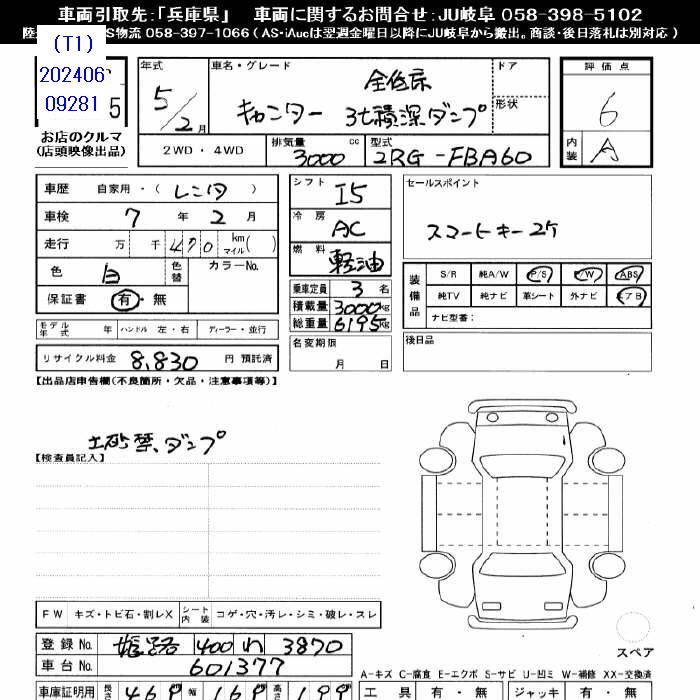 車両引取先：「兵庫県」 車両に関するお問合せ：JU岐阜 058-398-5102
S物流 058-397-1066（AS・iAucは翌週金曜日以降にJU岐阜から搬出。商談・後日落札は別対応）
(T1)
202406
09281
5
お店のクルマ
(店頭映像出品)
年式 5/2月
車名・グレード 全低床
キャンター 3t積深ダンプ
ドア
形状
評価点 6
内装 A
2WD・4WD
排気量 3000 cc
型式 2RG-FBA60
車歴 自家用・（レンタ）
車検 7年 2月
走行 万 千 470 km マイル( )
色 白 色替 カラーNo.
保証書 有・無
モデル年式 年 ハンドル 左・右 ディーラー・並行
リサイクル料金 8,830 円 預託済
シフト I5
冷房 AC
燃料 軽油
乗車定員 3 名
積載量 3000kg
総重量 6195kg
名変期限 月 日
セールスポイント
スマートキー2ケ
装備品 S/R 純A/W P/S P/W ABS
純TV 純ナビ 革シート 外ナビ エアB
ナビ型番：
後日品
【出品店申告欄(不良箇所・欠品・注意事項等)】
土砂禁ダンプ
【検査員記入】
FW キズ・トビ石・割レX シート内装 コゲ・穴・汚レ・シミ・破レ・スレ
登録No. 姫路 400 わ 3870
車台No. 601377
車庫証明用 長さ 469 幅 169 高さ 199
スペア
A-キズ C-腐食 E-エクボ S-サビ U-凹ミ W-補修 XX-交換済
工具 有・無 ジャッキ 有・無